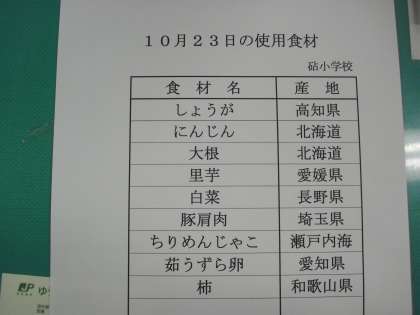 １０月２３日の使用食材
砧小学校
食 材 名 産 地
しょうが 高知県
にんじん 北海道
大根 北海道
里芋 愛媛県
白菜 長野県
豚肩肉 埼玉県
ちりめんじゃこ 瀬戸内海
茹うずら卵 愛知県
柿 和歌山県